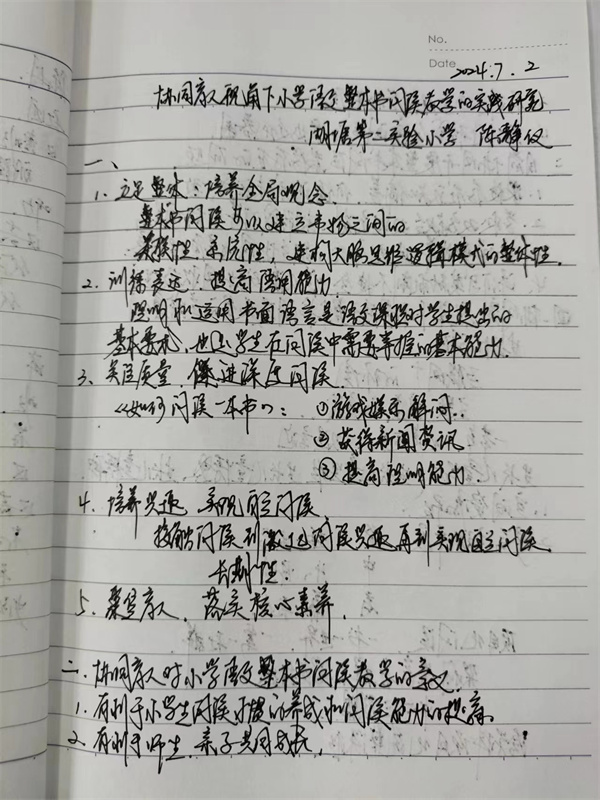 No.
Date 2024.7.2
协同育人视角下小学语文整本书阅读教学的实践研究
湖塘第二实验小学 陈静仪
一、
1. 立足整体:培养全局观念.
整本书阅读可以建立事物之间的
关联性 系统性,建构大脑思维逻辑模式的整体性.
2. 训练表达:提高语用能力
理解和运用书面语言是语文课程对学生提出的
基本要求,也是学生在阅读中需要掌握的基本能力.
3. 关注质量,促进深度阅读.
《如何阅读一本书》:①游戏娱乐解闷.
②获得新闻资讯
③提高理解能力.
4. 培养兴趣 实现自主阅读
接触阅读到激起阅读兴趣再到实现自主阅读.
长期性.
5. 聚焦育人,落实核心素养.
二、协同育人对小学语文整本书阅读教学的意义.
1. 有利于小学生阅读习惯的养成和阅读能力的提高.
2. 有利于师生、亲子共同成长.